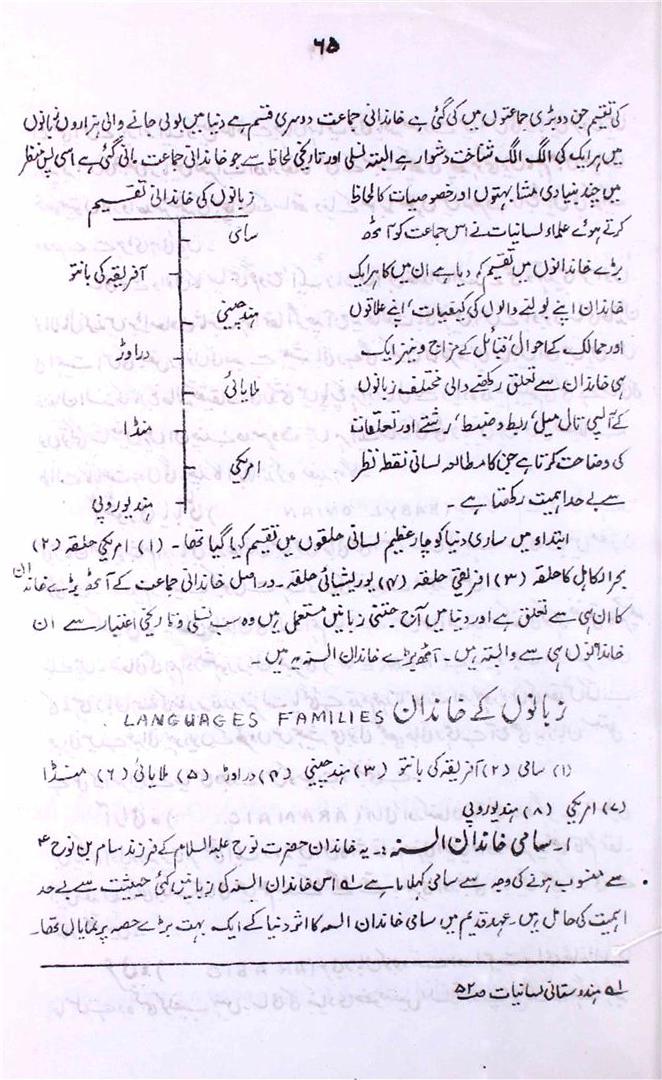 ۶۵
کی تقسیم جن دو بڑی جماعتوں میں کی گئی ہے خاندانی جماعت دوسری قسم ہے دنیا میں بولی جانے والی ہزاروں زبانوں
میں ہر ایک کی الگ الگ شناخت دشوار ہے البتہ نسلی اور تاریخی لحاظ سے جو خاندانی جماعت بانی گئی ہے اسی پس منظر
میں چند بنیادی مشابہتوں اور خصوصیات کا لحاظ
کرتے ہوئے علماء لسانیات نے اس جماعت کو آٹھ
بڑے خاندانوں میں تقسیم کر دیا ہے ان میں کا ہر ایک
خاندان اپنے بولنے والوں کی کیفیات، اپنے علاقوں
اور ممالک کے احوال، قبائل کے مزاج و نیز ایک
ہی خاندان سے تعلق رکھنے والی مختلف زبانوں
کے آپسی تال میل، ربط و ضبط، رشتے اور تعلقات
کی وضاحت کرتا ہے جن کا مطالعہ لسانی نقطہ نظر
سے بے حد اہمیت رکھتا ہے۔
زبانوں کی خاندانی تقسیم
سامی
آفریقہ کی بانتو
ہند چینی
دراوڑ
ملایائی
منڈا
امریکی
ہند یوروپی
ابتداء میں ساری دنیا کو چار عظیم لسانی حلقوں میں تقسیم کیا گیا تھا۔ (۱) امریکی حلقہ (۲)
بحر الکاہل کا حلقہ (۳) افریقی حلقہ (۴) یوریشیائی حلقہ۔ در اصل خاندانی جماعت کے آٹھ بڑے خاندان
کا ان ہی سے تعلق ہے اور دنیا میں آج جتنی زبانیں مستعمل ہیں وہ سب نسلی و تاریخی اعتبار سے ان
خاندانوں ہی سے وابستہ ہیں۔ آٹھ بڑے خاندان السنہ یہ ہیں۔
زبانوں کے خاندان LANGUAGES FAMILIES.
(۱) سامی (۲) آفریقہ کی بانتو (۳) ہند چینی (۴) دراوڑ (۵) ملایائی (۶) منڈا
(۷) امریکی (۸) ہند یوروپی
۱۔ سامی خاندان السنہ :۔ یہ خاندان حضرت نوح علیہ السلام کے فرزند سام بن نوح ؑ
سے منسوب ہونے کی وجہ سے سامی کہلاتا ہے ؎۱ اس خاندان السنہ کی زبانیں کئی حیثیت سے بے حد
اہمیت کی حامل ہیں۔ عہد قدیم میں سامی خاندان السنہ کا اثر دنیا کے ایک بہت بڑے حصہ پر نمایاں تھا۔
؎۱ ہندوستانی لسانیات صـ ۵۲